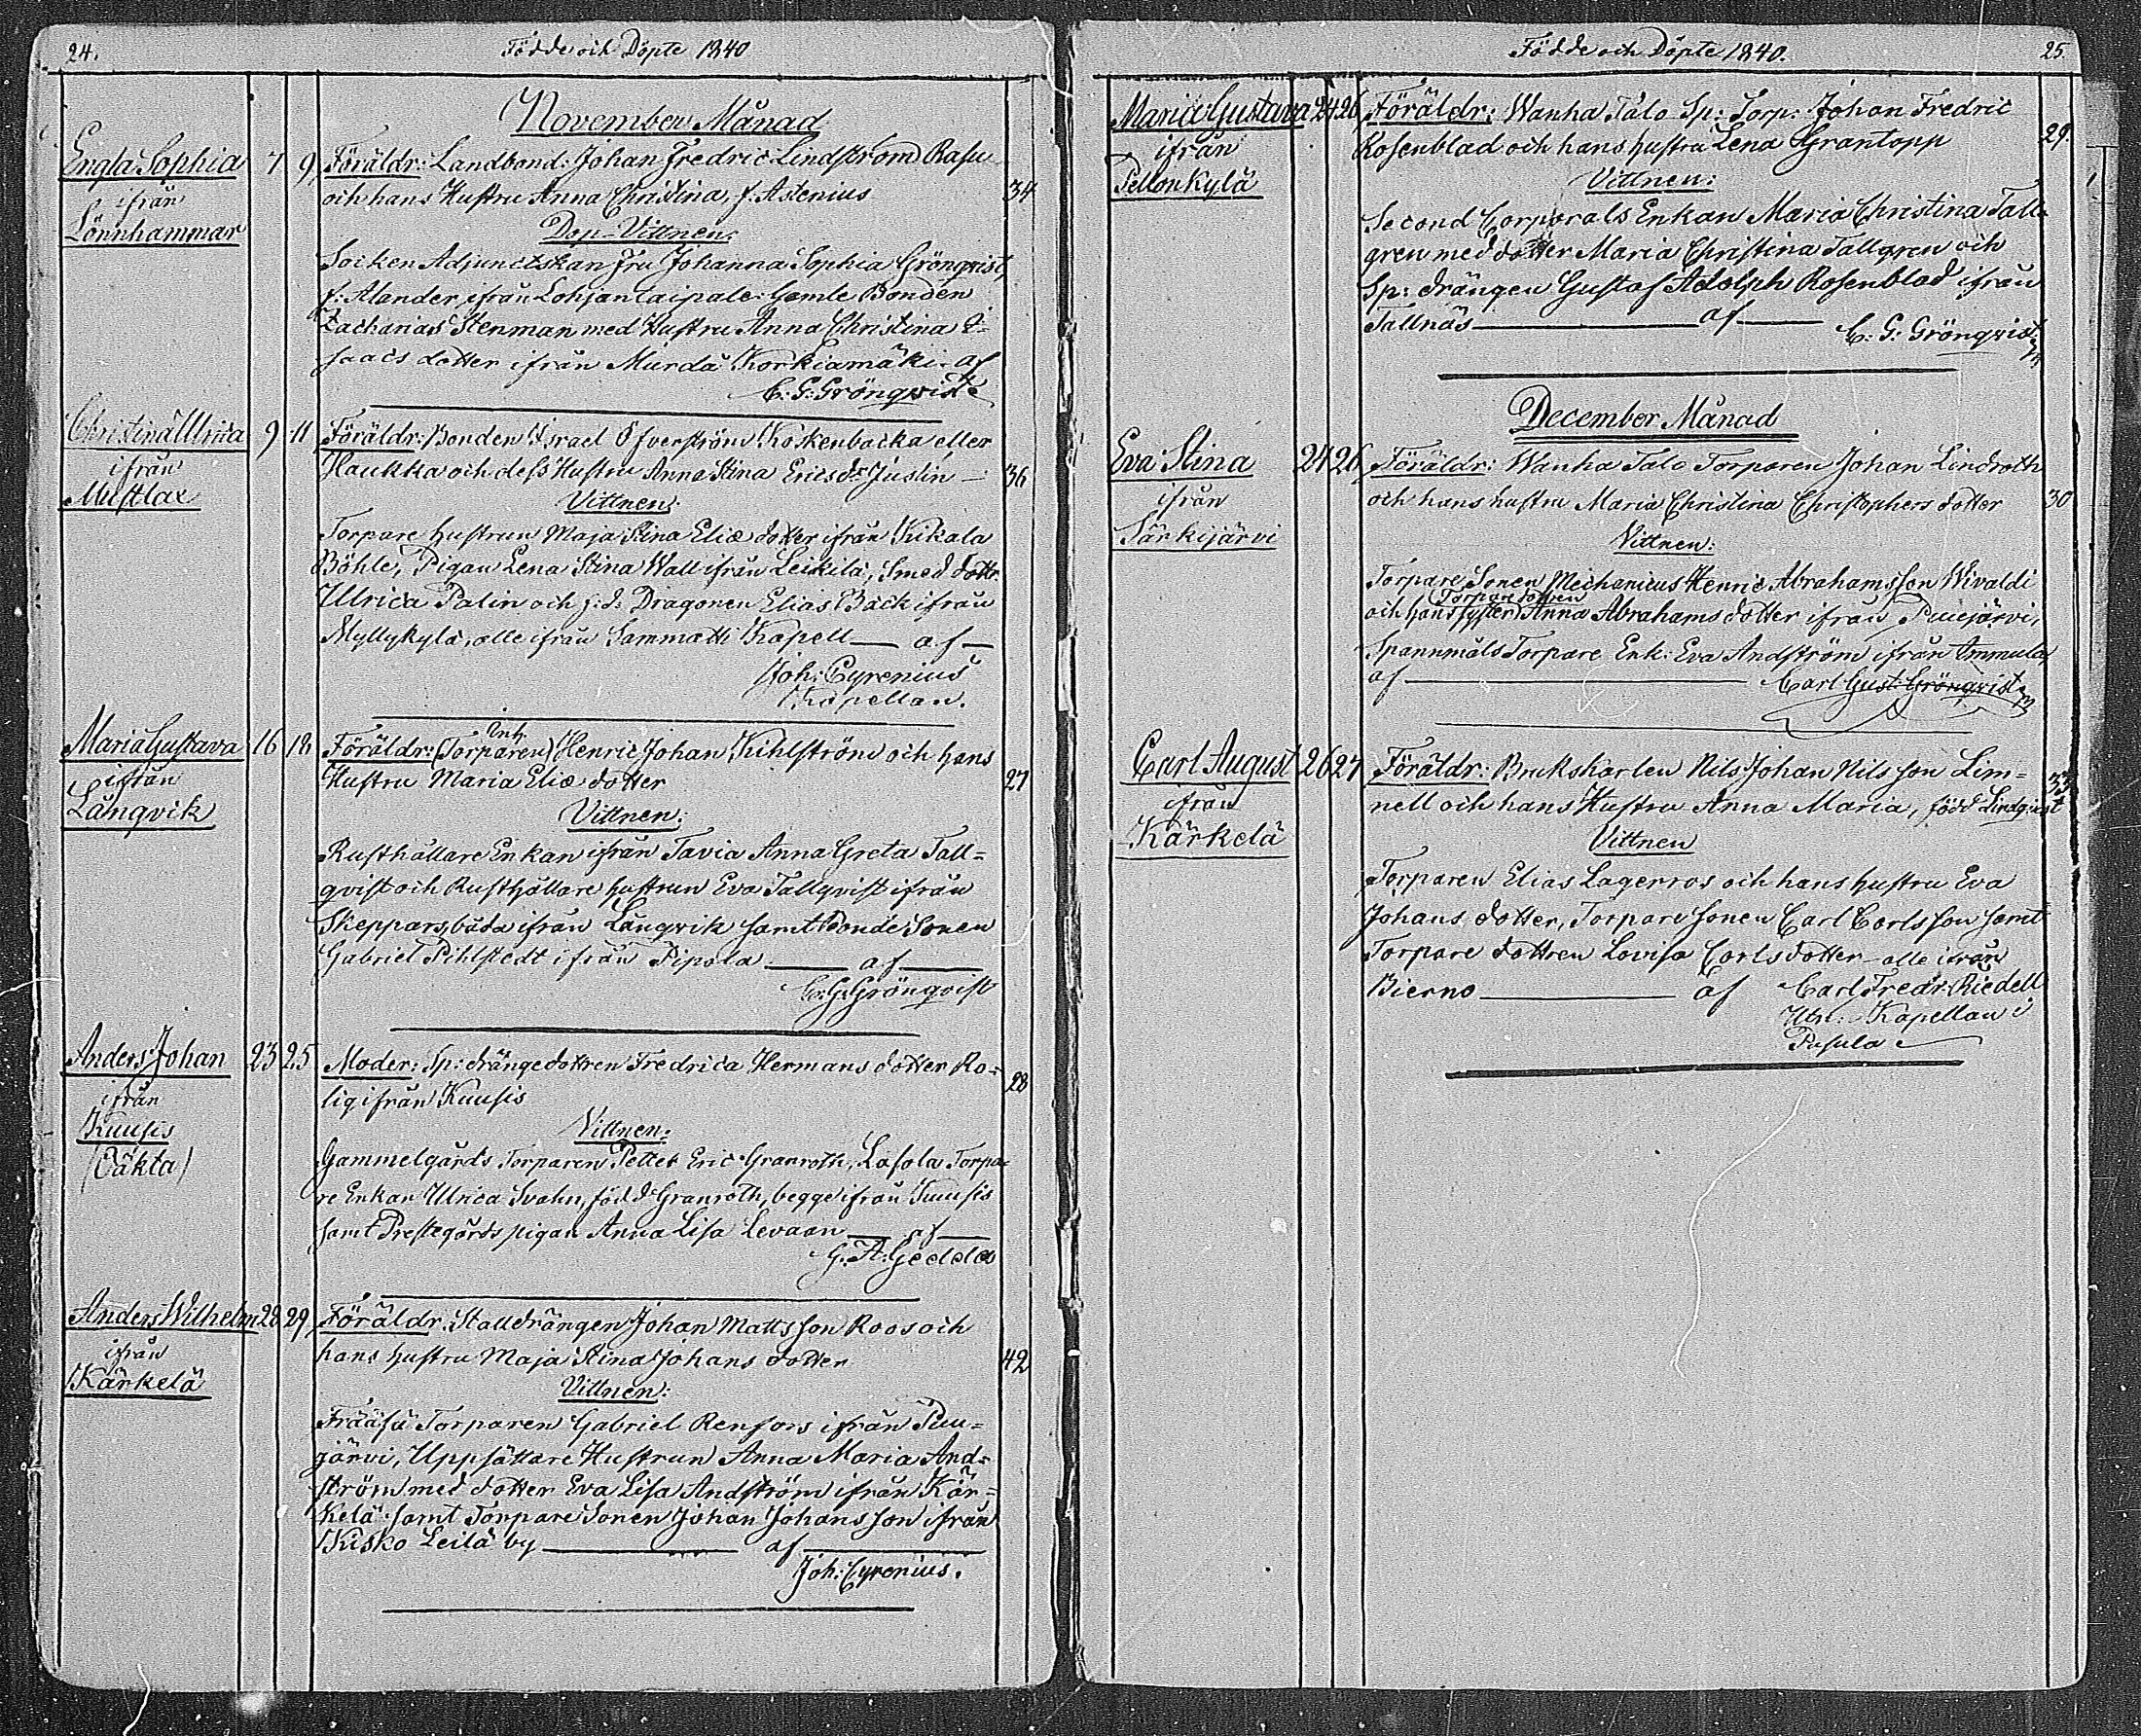 24. Födde och Döpte 1840
November Månad
Engla Sophia 7 9 Föräldr: Landbond: Johan Fredric Lindström Rasu
ifrån och hans Hustru Anna Christina, f. Astenius 34
Lönnhammar Dop-Vittnen:
Socken Adjunctskan Fru Johanna Sophia Grönqvist,
f: Alander ifrån Lohjantaipale: Gamle Bonden
Zacharias Stenman med Hustru Anna Christina I-
saacs dotter ifrån Korkiamäki. af
C: G: Grönqvist
Christina Ulrica 9 11 Föräldr: Bonden Israel Öfverström Koskenbacka eller
ifrån Haukka och dess Hustru Anna Stina Ericsdr Justin 36
Mustlax Vittnen:
Torpare hustrun Maja Stina Eliæ dotter ifrån Kikala
Böhle, Pigan Lena Stina Wall ifrån Leikilä, Smed dottr.
Ulrica Palin och f: d: Dragonen Elias Bäck ifrån
Myllykylä, alle ifrån Sammatti Kapell — af —
Joh: Cyrenius
Kapellan.
Maria Gustava 16 18 Föräldr: (Torparen) Inh. Henric Johan Kihlström och hans
ifrån Hustru Maria Eliæ dotter 27
Långvik Vittnen:
Rusthållare Enkan ifrån Tavia Anna Greta Tall=
qvist och Rusthållare hustrun Eva Tallqvist ifrån
Skeppars, båda ifrån Långvik samt Bonde Sonen
Gabriel Pihlstedt ifrån Pipola — af —
C: G: Grönqvist
Anders Johan 23 25 Moder: Sp: drängedottren Fredrica Hermans dotter Ro=
ifrån lig ifrån Kuusis 28
Kuusis Vittnen:
(Oäkta) Gammelgårds Torparen Petter Eric Granroth, Lasola Torpa=
re Enkan Ulrica Svahn, född Granroth, begge ifrån Kuusis
samt Prestegårds pigan Anna Lisa Levaan — af —
G. A. Gedda
Anders Wilhelm 28 29 Föräldr: Stalldrängen Johan Matts son Roos och
ifrån hans hustru Maja Stina Johans dotter 42
Kärkelä Vittnen:
Torparen Gabriel Renfors ifrån Puu=
järvi, Uppsättare Hustrun Anna Maria And=
ström med dotter Eva Lisa Andström ifrån Kär=
kelä samt Torpare Sonen Johan Johans son ifrån
Kisko Leilä by — af —
Joh: Cyrenius.
Födde och Döpte 1840. 25.
Maria Gustava 24 26 Föräldr: Wanha Talo Sp: Torp: Johan Fredric
ifrån Rosenblad och hans hustru Lena Grantopp 29.
Pellonkylä Vittnen:
Second Corporals Enkan Maria Christina Tall-
gren med dotter Maria Christina Tallgren och
Sp: drängen Gustaf Adolph Rosenblad ifrån
Tallnäs — af —
C: G: Grönqvist
December Månad
Eva Stina 24 26 Föräldr: Wanha Talo Torparen Johan Lindroth
ifrån och hans hustru Maria Christina Christophers dotter 30
Särkijärvi Vittnen:
Torpare Sonen Mechanicus Henric Abrahamsson Wivaldi
och hans syster Torpare dottren Anna Abrahams dotter ifrån Puujärvi,
Spannmåls Torpare Enk: Eva Andström ifrån Ammula
af — Carl Gust: Grönqvist
Carl August 26 27 Föräldr: Brukskarlen Nils Johan Nils son Lim= 33
ifrån nell och hans Hustru Anna Maria, född Lindqvist
Kärkelä Vittnen
Torparen Elias Lagerros och hans hustru Eva
Johans dotter, Torpare sonen Carl Carls son samt
Torpare dottren Lovisa Carls dotter — alle ifrån
Bierno — af Carl Fredr: Riedell
Kapellan i
Pusula